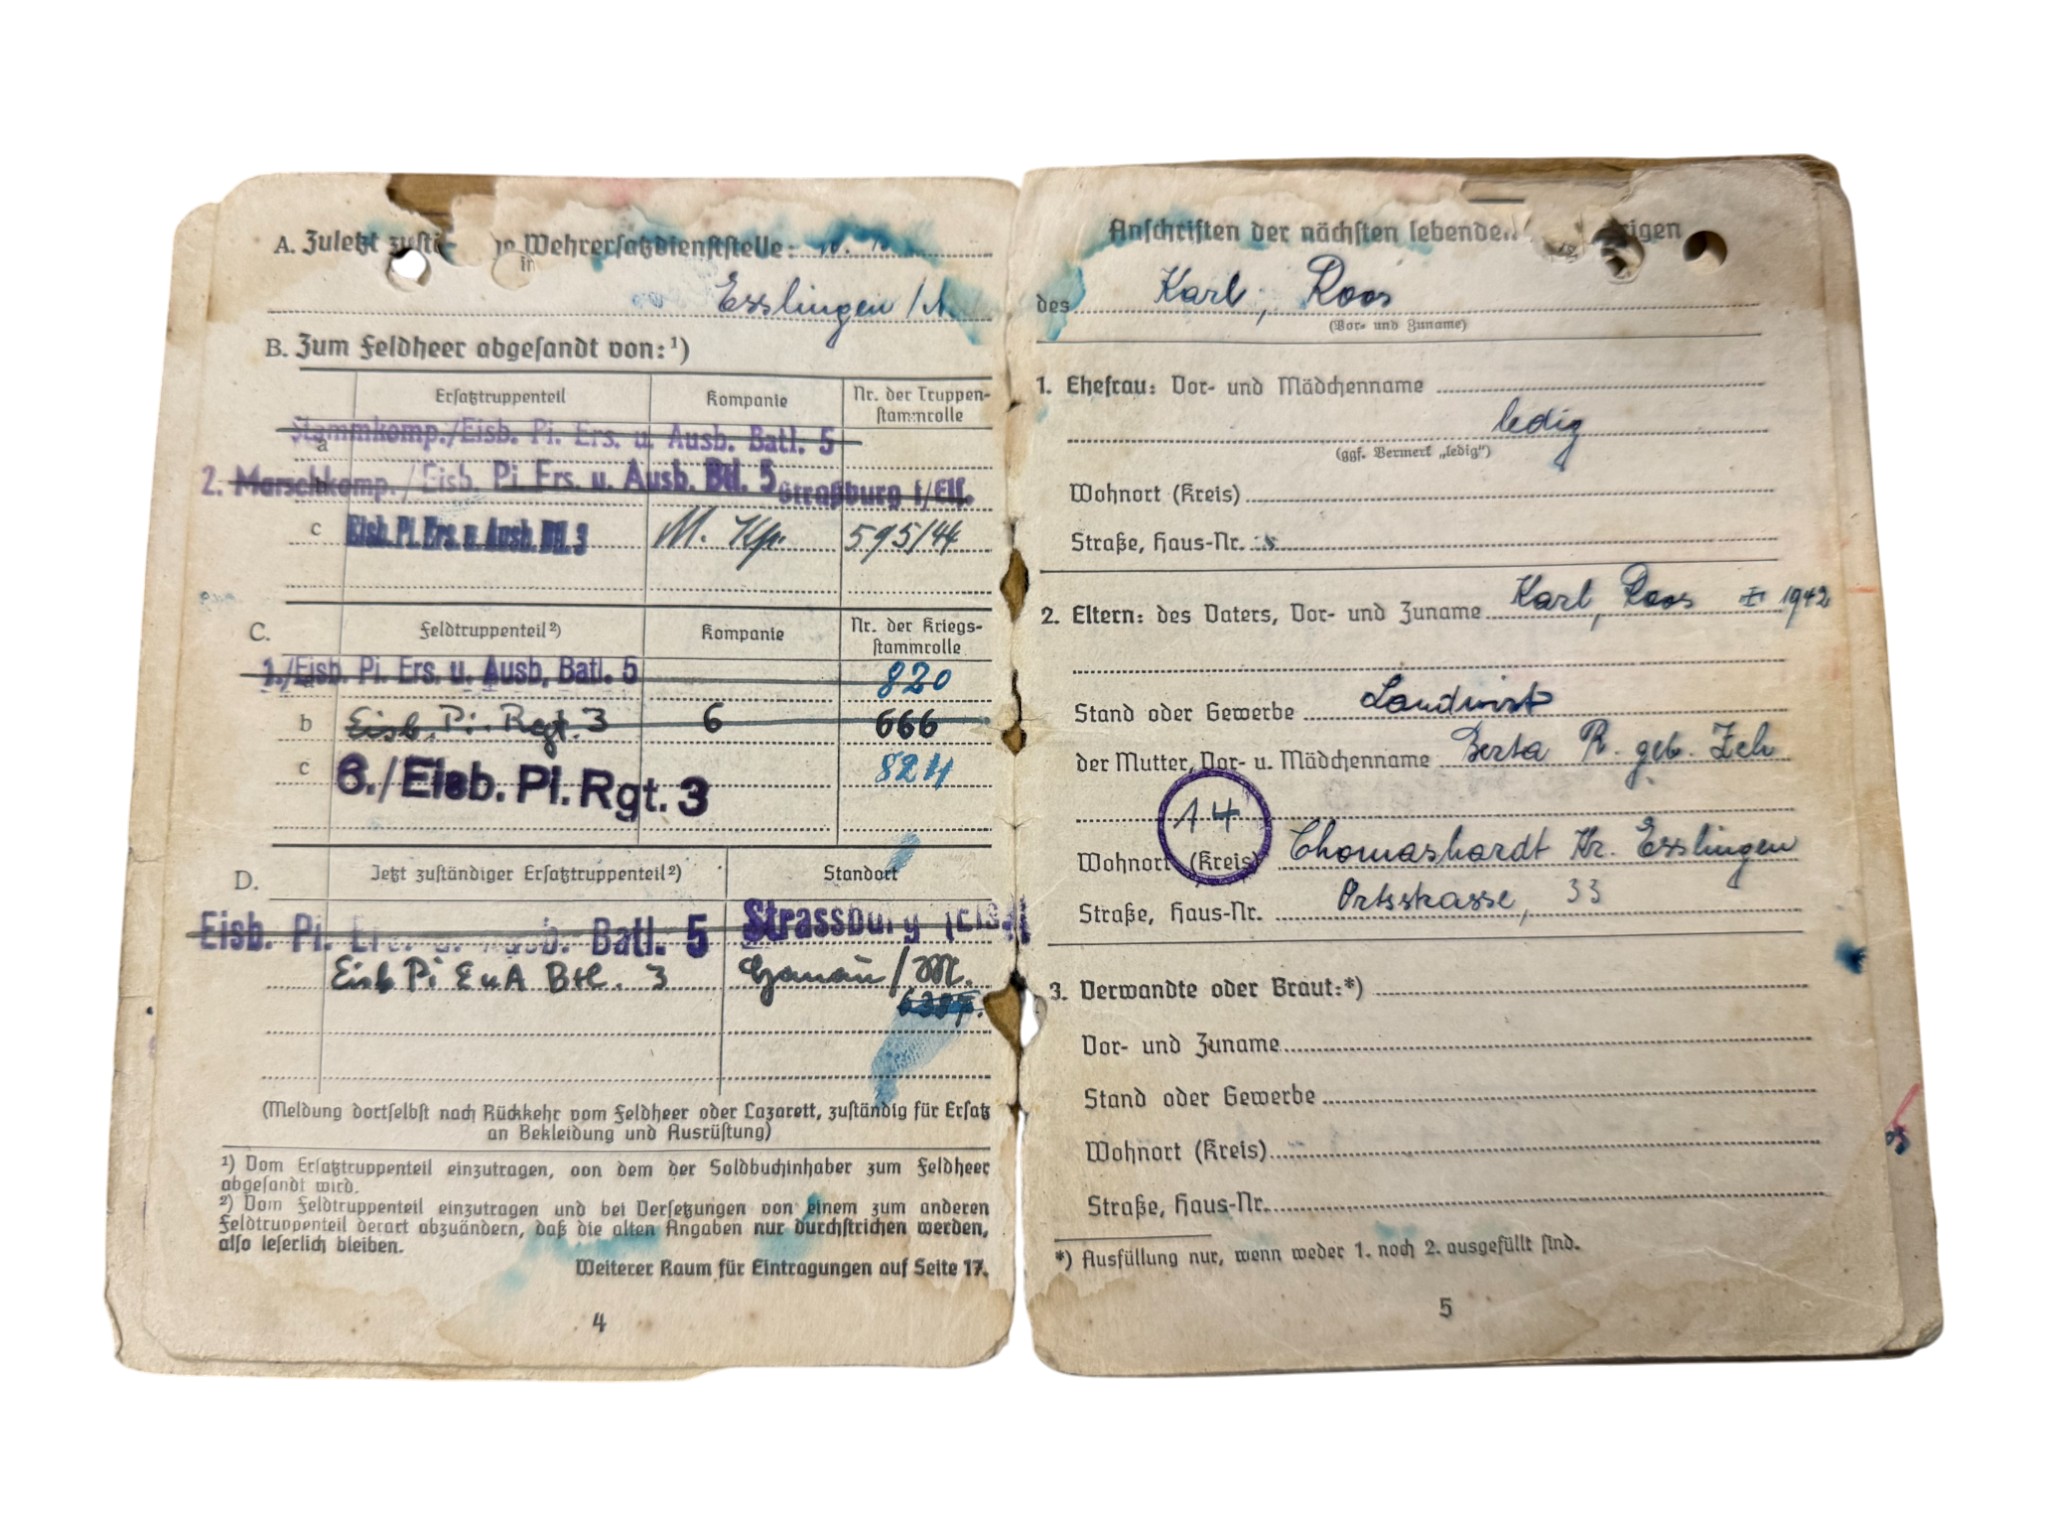 A. Zuletzt zustä ne Wehrersatzdienststelle:
in
Esslingen /N.
B. Zum Feldheer abgesandt von:¹)
Ersatztruppenteil Kompanie Nr. der Truppen-
stammrolle
a Stammkomp./Eisb. Pi. Ers. u. Ausb. Batl. 5
2. Marschkomp./Eisb. Pi. Ers. u. Ausb. Btl. 5 Straßburg i/Els.
c Eisb. Pi. Ers. u. Ausb. Btl. 3 M. Kp. 595/44
C. Feldtruppenteil²) Kompanie Nr. der Kriegs-
stammrolle
1./Eisb. Pi. Ers. u. Ausb. Batl. 5 820
b Eisb. Pi. Rgt. 3 6 666
c 6./Eisb. Pi. Rgt. 3 824
D. Jetzt zuständiger Ersatztruppenteil²) Standort
Eisb. Pi. Ers. u. Ausb. Batl. 5 Strassburg (Els.)
Eisb Pi E u A Btl. 3 Hanau / M.
(Meldung dortselbst nach Rückkehr vom Feldheer oder Lazarett, zuständig für Ersatz
an Bekleidung und Ausrüstung)
¹) Vom Ersatztruppenteil einzutragen, von dem der Soldbuchinhaber zum Feldheer
abgesandt wird.
²) Vom Feldtruppenteil einzutragen und bei Versetzungen von einem zum anderen
Feldtruppenteil derart abzuändern, daß die alten Angaben nur durchstrichen werden,
also leserlich bleiben.
Weiterer Raum für Eintragungen auf Seite 17.
4
Anschriften der nächsten lebenden rigen
des Karl, Roos
(Vor- und Zuname)
1. Ehefrau: Vor- und Mädchenname
ledig
(ggf. Vermerk „ledig“)
Wohnort (Kreis)
Straße, Haus-Nr.
2. Eltern: des Vaters, Vor- und Zuname Karl, Roos 1942
Stand oder Gewerbe Landwirt
der Mutter, Vor- u. Mädchenname Berta R. geb. Zeh
14
Wohnort (Kreis) Thomashardt Kr. Esslingen
Straße, Haus-Nr. Ortsstrasse, 33
3. Verwandte oder Braut:*)
Vor- und Zuname
Stand oder Gewerbe
Wohnort (Kreis)
Straße, Haus-Nr.
*) Ausfüllung nur, wenn weder 1. noch 2. ausgefüllt sind.
5